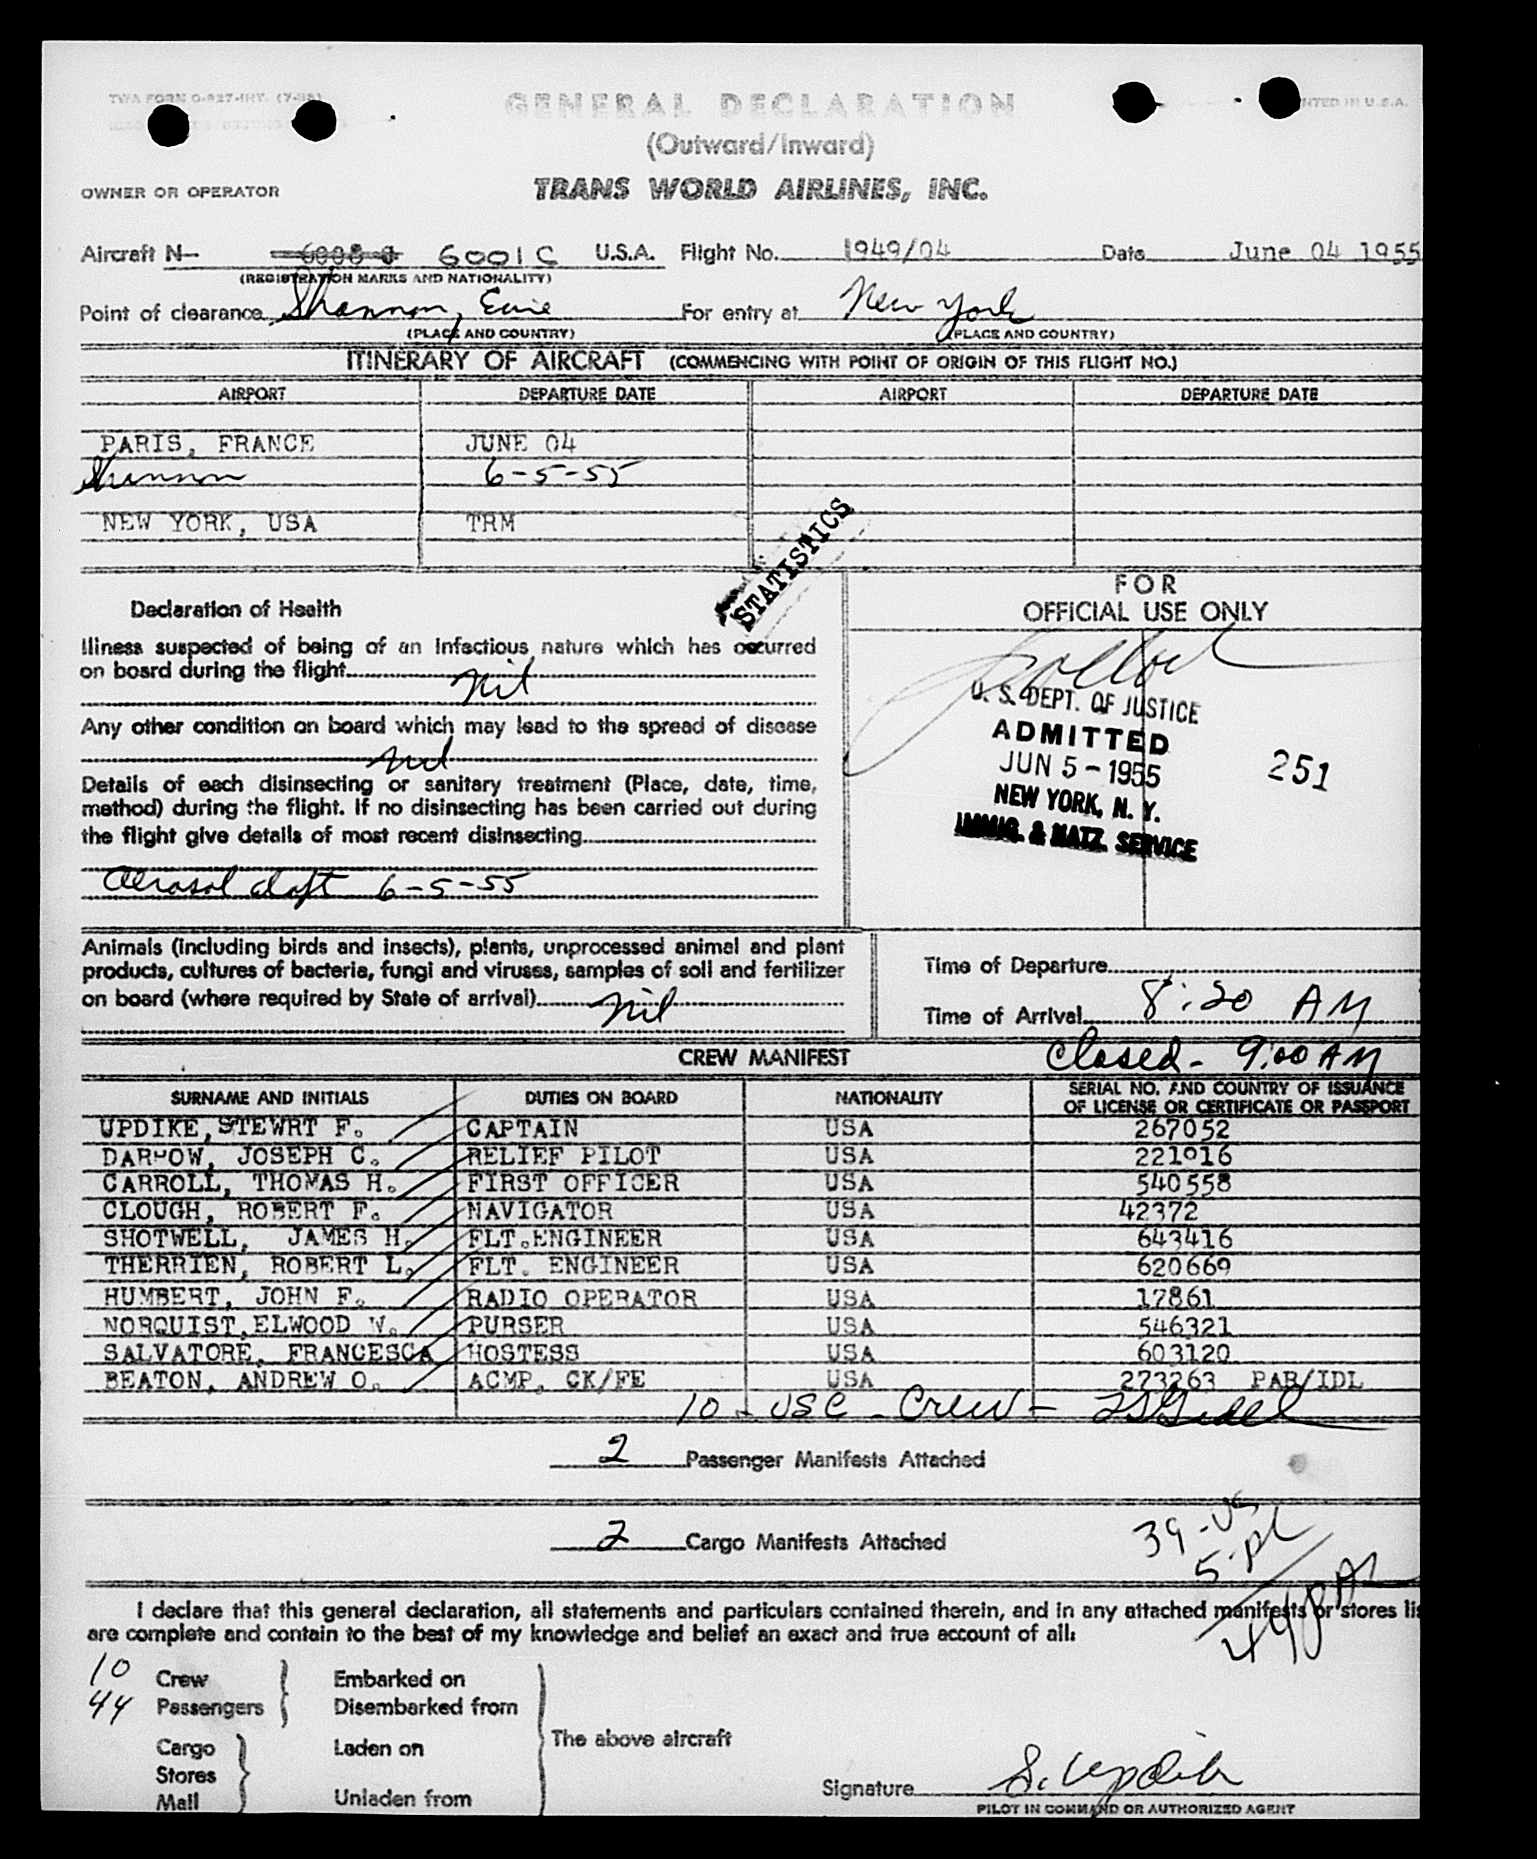 TWA FORM O-827-INT. (7-53)
PRINTED IN U.S.A.
GENERAL DECLARATION
(Outward/Inward)
OWNER OR OPERATOR TRANS WORLD AIRLINES, INC.
Aircraft N- 6001C U.S.A. Flight No. 1949/04 Date June 04 1955
(REGISTRATION MARKS AND NATIONALITY)
Point of clearance Shannon, Eire For entry at New York
(PLACE AND COUNTRY) (PLACE AND COUNTRY)
ITINERARY OF AIRCRAFT (COMMENCING WITH POINT OF ORIGIN OF THIS FLIGHT NO.)
AIRPORT DEPARTURE DATE AIRPORT DEPARTURE DATE
PARIS, FRANCE JUNE 04
Shannon 6-5-55
NEW YORK, USA TRM
STATISTICS
Declaration of Health
Illness suspected of being of an infectious nature which has occurred
on board during the flight
nil
Any other condition on board which may lead to the spread of disease
nil
Details of each disinsecting or sanitary treatment (Place, date, time,
method) during the flight. If no disinsecting has been carried out during
the flight give details of most recent disinsecting
Aerosol 6-5-55
FOR
OFFICIAL USE ONLY
U. S. DEPT. OF JUSTICE
ADMITTED
JUN 5 - 1955
NEW YORK, N. Y.
IMMIG. & NATZ. SERVICE
251
Animals (including birds and insects), plants, unprocessed animal and plant
products, cultures of bacteria, fungi and viruses, samples of soil and fertilizer
on board (where required by State of arrival) nil
Time of Departure
Time of Arrival 8:20 AM
CREW MANIFEST Closed - 9:00 AM
SURNAME AND INITIALS DUTIES ON BOARD NATIONALITY SERIAL NO. AND COUNTRY OF ISSUANCE
OF LICENSE OR CERTIFICATE OR PASSPORT
UPDIKE, STEWRT F. CAPTAIN USA 267052
DARROW, JOSEPH C. RELIEF PILOT USA 221916
CARROLL, THOMAS H. FIRST OFFICER USA 540558
CLOUGH, ROBERT F. NAVIGATOR USA 42372
SHOTWELL, JAMES H. FLT.ENGINEER USA 643416
THERRIEN, ROBERT L. FLT. ENGINEER USA 620669
HUMBERT, JOHN F. RADIO OPERATOR USA 17861
NORQUIST,ELWOOD W. PURSER USA 546321
SALVATORE, FRANCESCA HOSTESS USA 603120
BEATON, ANDREW O. ACMP. CK/FE USA 273263 PAR/IDL
10 - USC - Crew -
2 Passenger Manifests Attached
2 Cargo Manifests Attached
39 - US
5 -
44
I declare that this general declaration, all statements and particulars contained therein, and in any attached manifests or stores lis
are complete and contain to the best of my knowledge and belief an exact and true account of all:
10 Crew Embarked on
44 Passengers Disembarked from
The above aircraft
Cargo Laden on
Stores
Mail Unladen from
Signature S. Updike
PILOT IN COMMAND OR AUTHORIZED AGENT